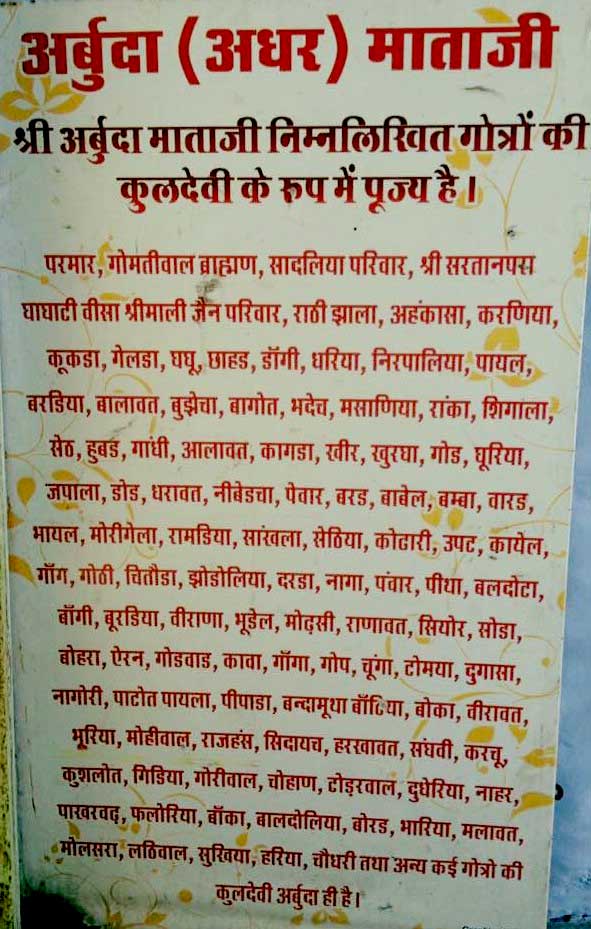 अर्बुदा (अधर) माताजी
श्री अर्बुदा माताजी निम्नलिखित गोत्रों की
कुलदेवी के रूप में पूज्य है।
परमार, गोमतीवाल ब्राह्मण, सादलिया परिवार, श्री सरतानपरा
घाघाटी वीसा श्रीमाली जैन परिवार, राठी झाला, अहंकासा, करणिया,
कूकडा, गेलडा, घघू, छाहड, डॉगी, धरिया, निरपालिया, पायल,
बरडिया, बालावत, बुझेचा, बागोत, भदेच, मसाणिया, रांका, शिगाला,
सेठ, हुबड, गांधी, आलावत, कागडा, खीर, खुरघा, गोड, घूरिया,
जपाला, डोड, धरावत, नीबेडचा, पेवार, बरड, बाबेल, बम्बा, वारड,
भायल, मोरीगेला, रामडिया, सांखला, सेठिया, कोढारी, उपट, कायेल,
गॉग, गोठी, चितौडा, झोडोलिया, दरडा, नागा, पंवार, पीथा, बलदोटा,
बॉगी, बूरडिया, वीराणा, भूडेल, मोढ़सी, राणावत, सियोर, सोडा,
बोहरा, ऐरन, गोडवाड, कावा, गॉगा, गोप, चूंगा, टोमया, दुगासा,
नागोरी, पाटोत पायला, पीपाडा, बन्दामूथा बॉठिया, बोका, वीरावत,
भूरिया, मोहीवाल, राजहंस, सिदायच, हरखावत, संघवी, करचू,
कुशलोत, गिडिया, गोरीवाल, चोहाण, टोड़रवाल, दुधेरिया, नाहर,
पाखरवढ़, फलोरिया, बॉका, बालदोलिया, बोरड, भारिया, मलावत,
मोलसरा, लठिवाल, सुखिया, हरिया, चौधरी तथा अन्य कई गोत्रो की
कुलदेवी अर्बुदा ही है।